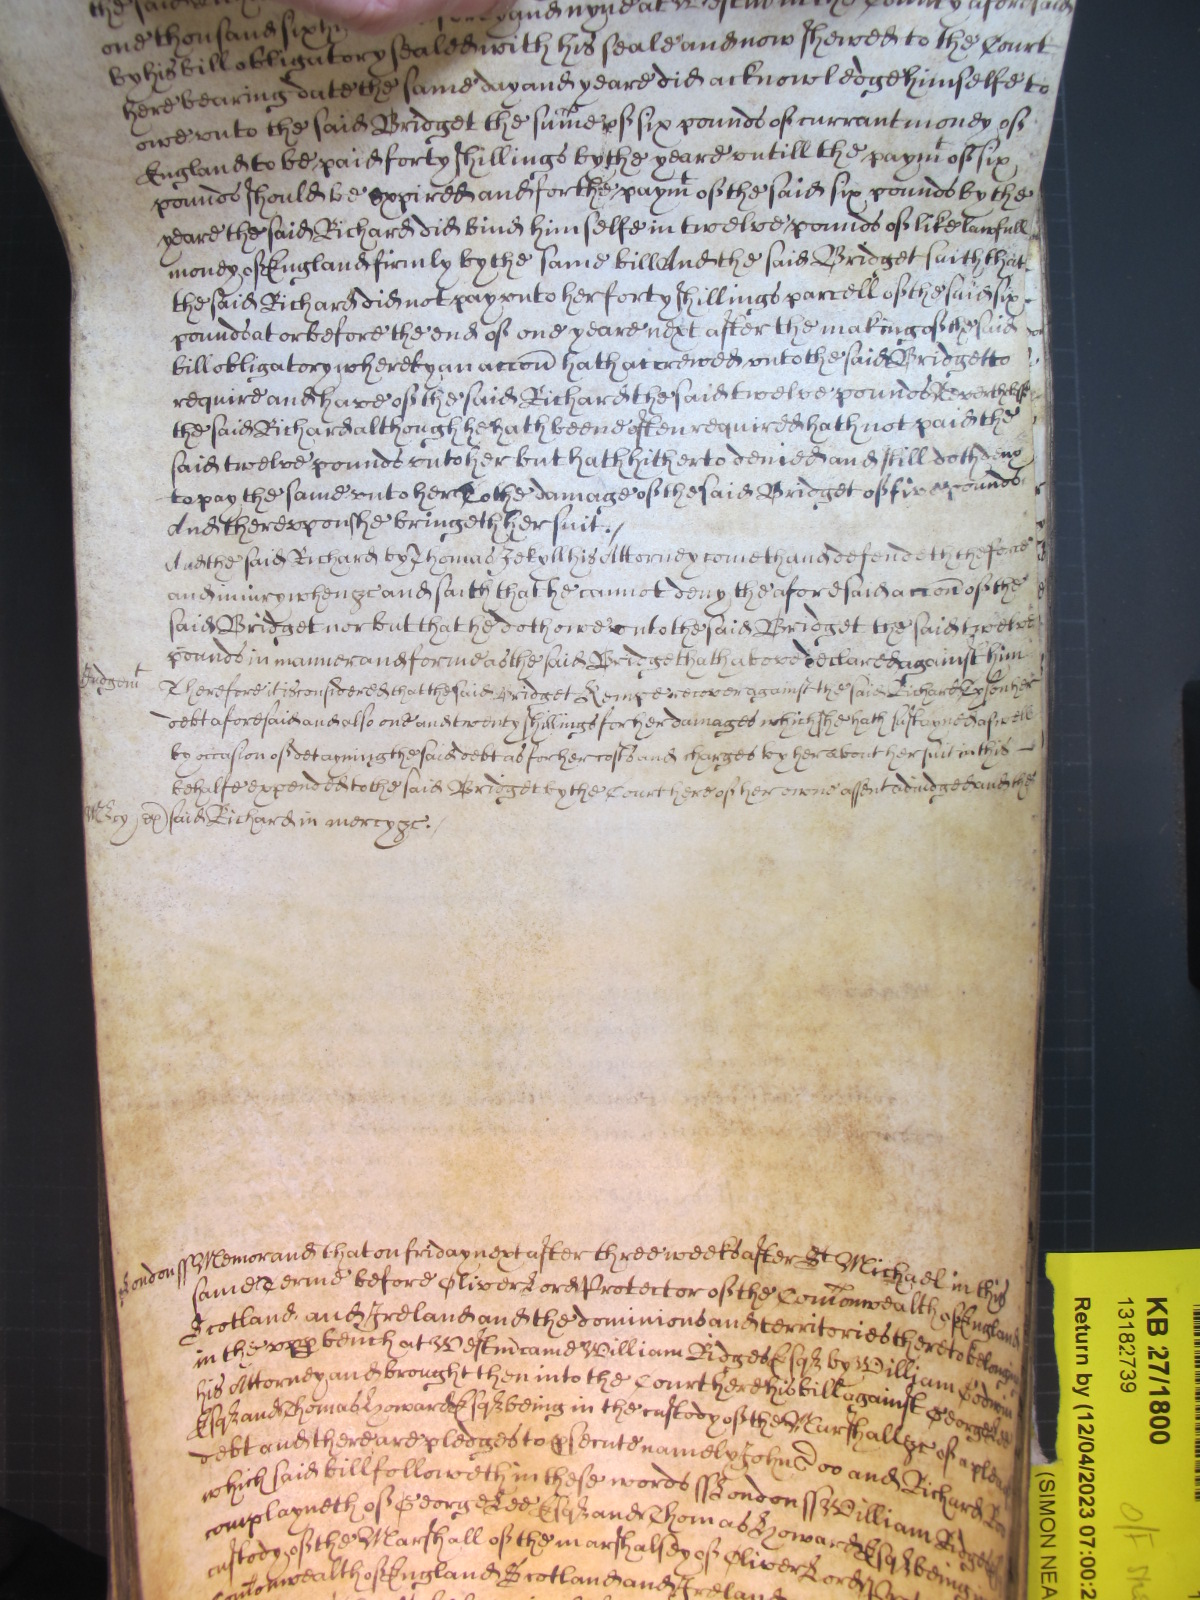 the said
one thousand sixty and nyne at Westm in the County aforesaid
by his bill obligatory sealed with his seale and now shewed to the Court
here bearing date the same day and yeare did acknowledge himselfe to
owe unto the said Bridget the sum̄e of six pounds of currant money of
England to be paid forty shillings by the yeare untill the paymt of six
pounds should be expired and for the paymt of the said six pounds by the
yeare the said Richard did bind himselfe in twelve pounds of like lawfull
money of England firmly by the same bill And the said Bridget saith that
the said Richard did not pay unto her forty shillings parcell of the said six
pounds at or before the end of one yeare next after the making of the said
bill obligatory whereby an accōn hath accrewed unto the said Bridget to
require and have of the said Richard the said twelve pounds Neverthelesse
the said Richard although he hath beene often required hath not paid the
said twelve pounds unto her but hath hitherto denied and still doth deny
to pay the same unto her To the damage of the said Bridget of five pounds
And thereupon she bringeth her suit./
And the said Richard by Thomas Jekyll his Attorney cometh and defendeth the force
and iniury when &c and saith that he cannot deny the aforesaid accōn of the
said Bridget nor but that he doth owe unto the said Bridget the said twelve
pounds in manner and forme as the said Bridget hath above declared against him
Judgemt Therefore it is considered that the said Bridget recover against the said Richard her
debt aforesaid and also one and twenty shillings for her damages which she hath sustayned aswell
by occasion of detayning the said debt as for her costs and charges by her about her suit in this
behalfe expended to the said Bridget by the Court here of her owne assent adiudged and the
Mercy said Richard in mercy &c./
London ss Memorand that on friday next after three weeks after St Michael in this
same Terme before Oliver Lord Protector of the Com̄onwealth of England
Scotland and Ireland and the dominions and territories thereto belonging
in the upp bench at Westm came William Ridges Esqz by William Godwin
his Attorney and brought then into the Court here his bill against George Lee
Esqz and Thomas Howard Esqz being in the custody of the Marshall &c of a plea of
debt and there are pledges to psecute namely John Doo and Richard Roo
which said bill followeth in these words ss London ss William Ridges
complayneth of George Lee Esqz and Thomas Howard Esqz being in
custody of the Marshall of the marshalsey of Oliver Lord
Com̄onwealth of England Scotland and Ireland
KB 27/1800
13182739
Return by (12/04/2023 07:00:2
(SIMON NEA